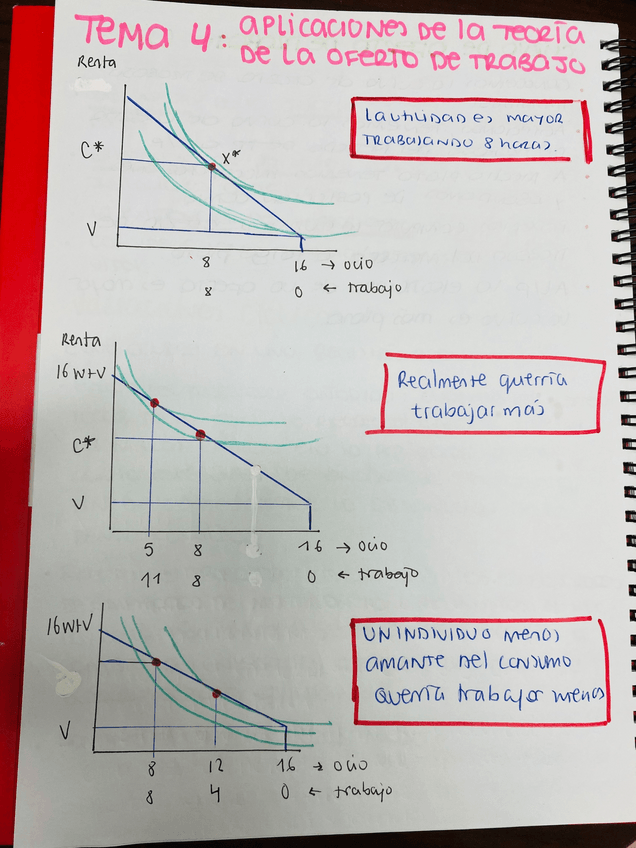 TEMA 4: APLICACIONES DE LA TEORÍA
DE LA OFERTO DE TRABAJO
Renta
La utilidad es mayor
trabajando 8 horas.
C*
X*
V
8 16 → ocio
8 0 ← trabajo
Renta
16W+V
Realmente querría
trabajar más
C*
V
5 8 16 → ocio
11 8 0 ← trabajo
16W+V
UN INDIVIDUO menos
amante del consumo
querría trabajar menos
V
8 12 16 → ocio
8 4 0 ← trabajo